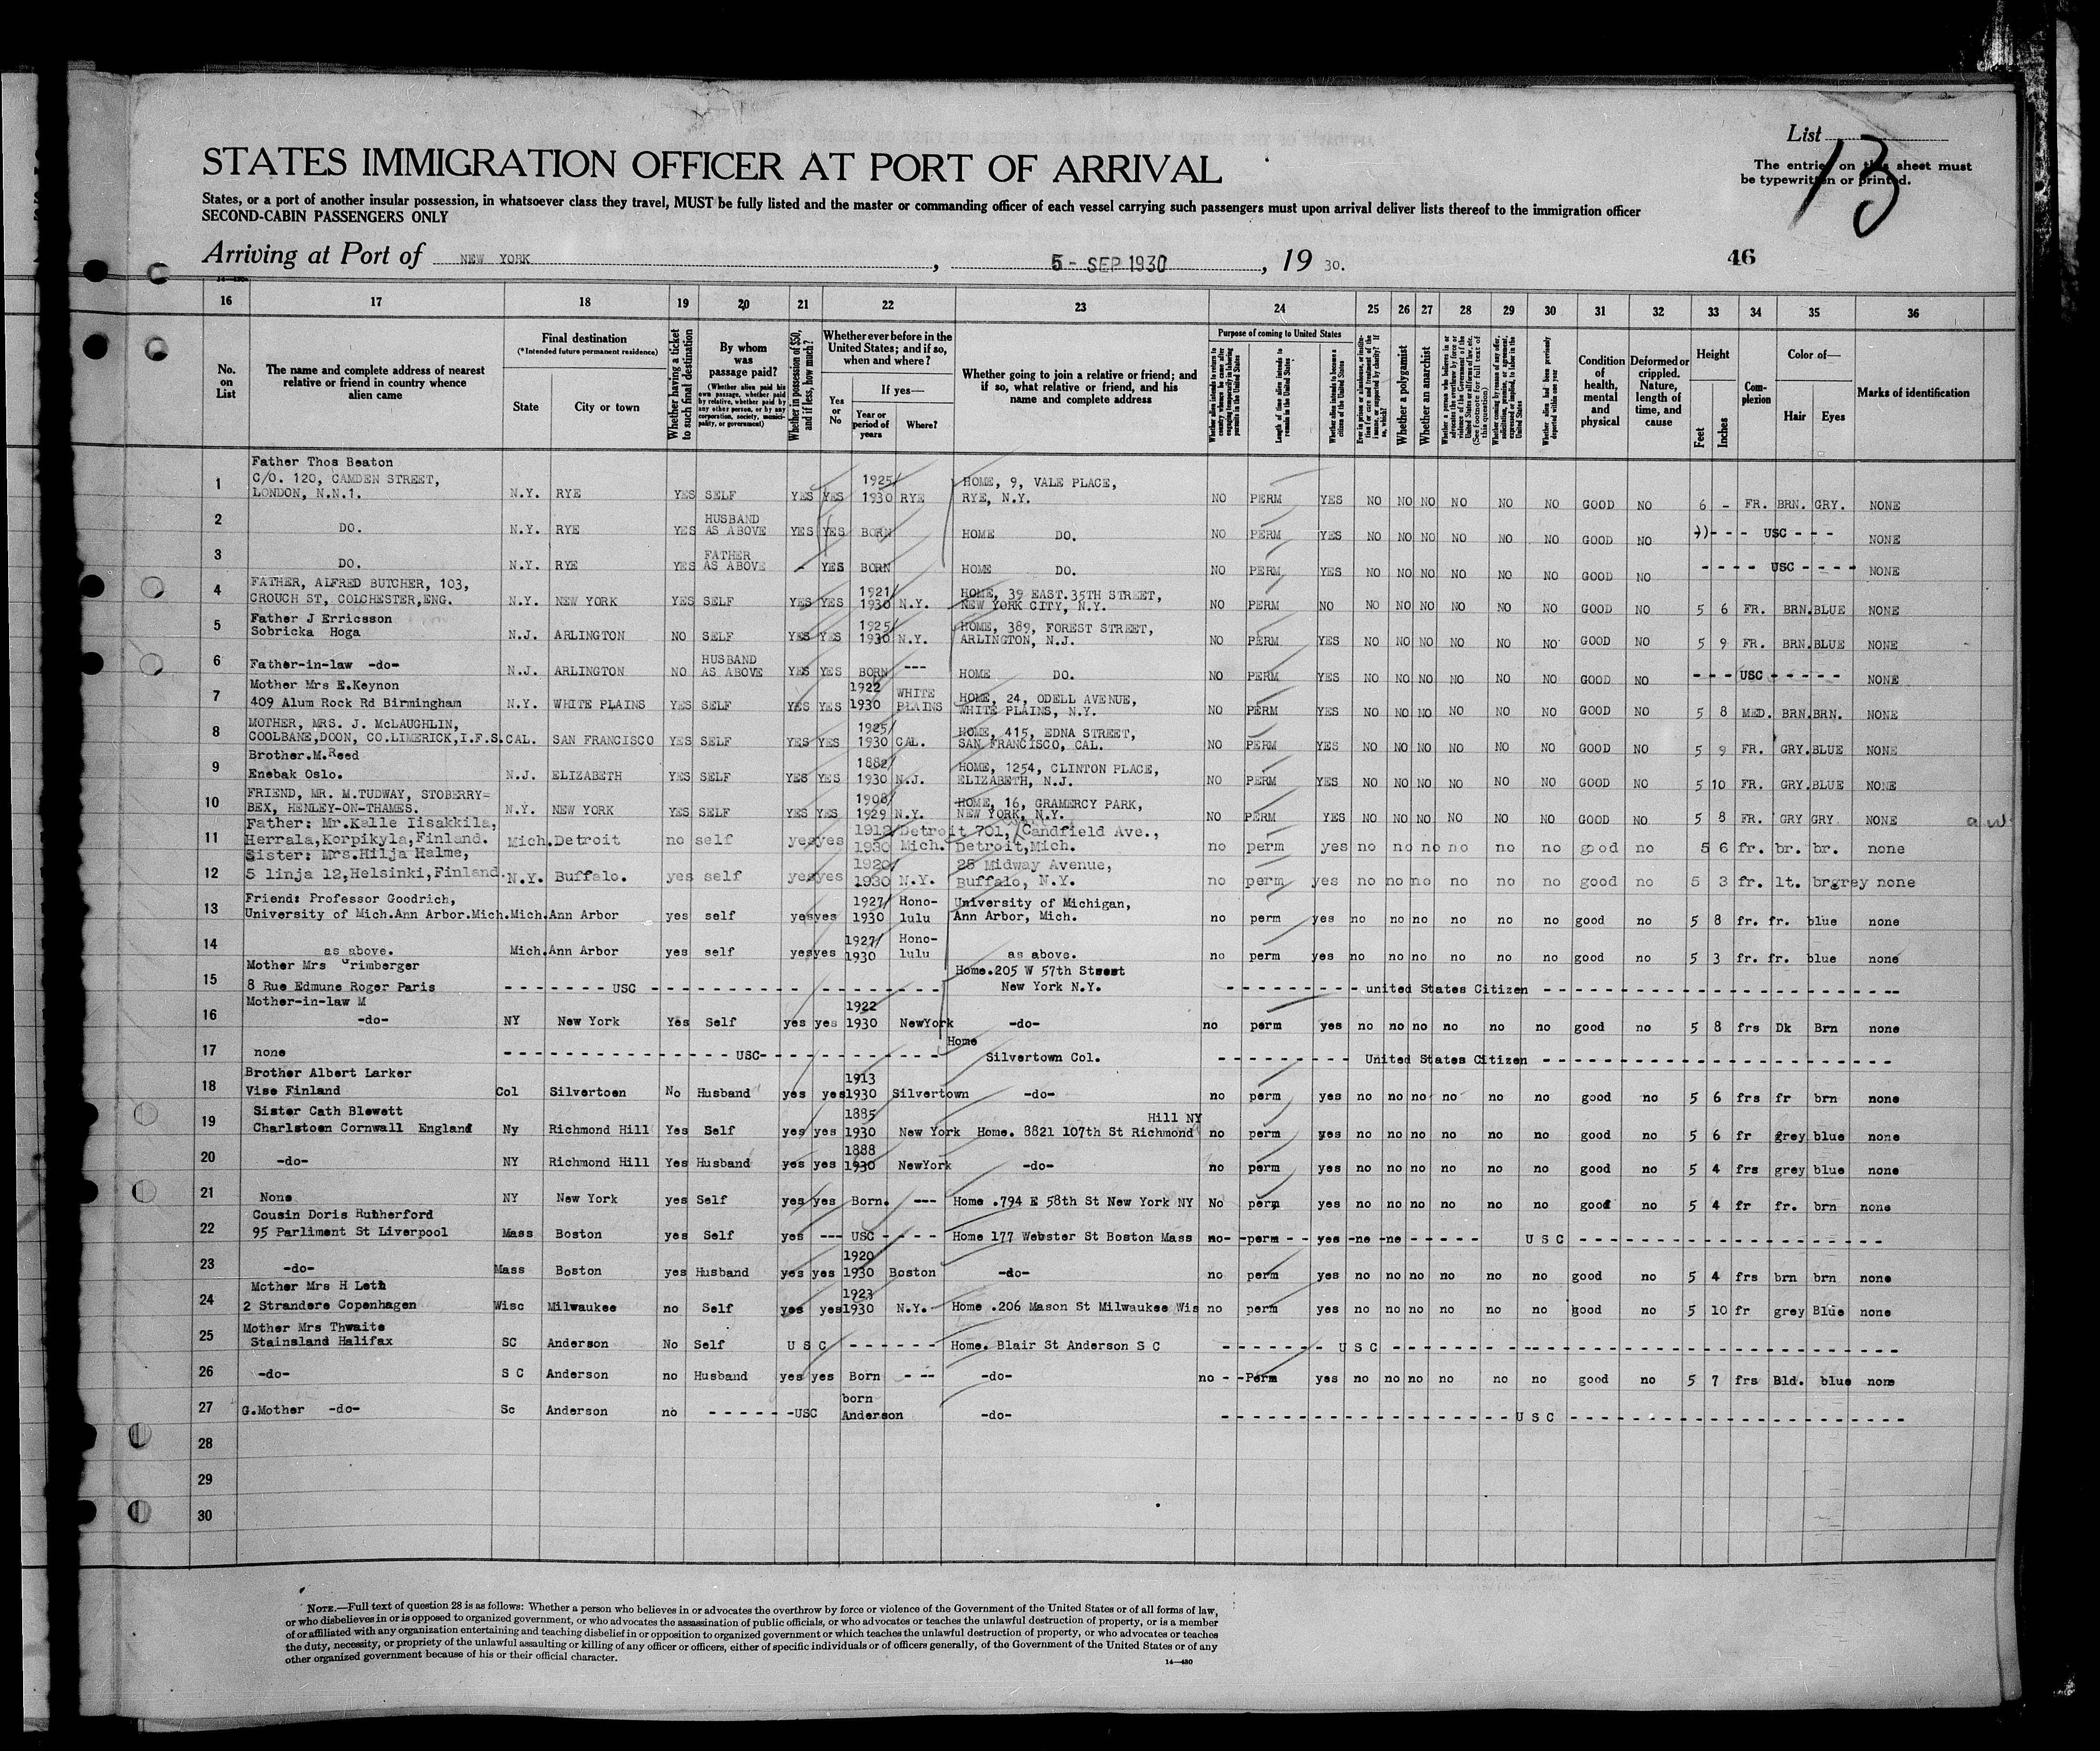 List
13
The entries on this sheet must
be typewritten or printed.
STATES IMMIGRATION OFFICER AT PORT OF ARRIVAL
States, or a port of another insular possession, in whatsoever class they travel, MUST be fully listed and the master or commanding officer of each vessel carrying such passengers must upon arrival deliver lists thereof to the immigration officer
SECOND-CABIN PASSENGERS ONLY
Arriving at Port of NEW YORK , 5 - SEP 1930 , 19 30.
46
16 17 18 19 20 21 22 23 24 25 26 27 28 29 30 31 32 33 34 35 36
No. on List
The name and complete address of nearest relative or friend in country whence alien came
Final destination
(*Intended future permanent residence)
State
City or town
Whether having a ticket to such final destination
By whom was passage paid?
(Whether alien paid his own passage, whether paid by relative, whether paid by any other person, or by any corporation, society, municipality, or government)
Whether in possession of $50, and if less, how much?
Whether ever before in the United States; and if so, when and where?
Yes or No
If yes—
Year or period of years
Where?
Whether going to join a relative or friend; and if so, what relative or friend, and his name and complete address
Purpose of coming to United States
Length of time alien intends to remain in the United States
Whether alien intends to become a citizen of the United States
Whether a polygamist
Whether an anarchist
Whether alien had been previously deported within one year
Condition of health, mental and physical
Deformed or crippled. Nature, length of time, and cause
Height
Feet
Inches
Complexion
Color of—
Hair
Eyes
Marks of identification
1 Father Thos Beaton
C/O. 120, CAMDEN STREET,
LONDON, N.N.1. N.Y. RYE YES SELF YES YES 1925/ 1930 RYE HOME, 9, VALE PLACE, RYE, N.Y. NO PERM YES NO NO NO NO NO NO GOOD NO 6 - FR. BRN. GRY. NONE
2 DO. N.Y. RYE YES HUSBAND AS ABOVE YES YES BORN HOME DO. NO PERM YES NO NO NO NO NO NO GOOD NO - - - USC - - - NONE
3 DO. N.Y. RYE YES FATHER AS ABOVE - YES BORN HOME DO. NO PERM YES NO NO NO NO NO NO GOOD NO - - - - USC - - - - NONE
4 FATHER, ALFRED BUTCHER, 103,
CROUCH ST, COLCHESTER,ENG. N.Y. NEW YORK YES SELF YES YES 1921/ 1930 N.Y. HOME, 39 EAST.35TH STREET, NEW YORK CITY, N.Y. NO PERM NO NO NO NO NO NO NO GOOD NO 5 6 FR. BRN. BLUE NONE
5 Father J Erricsson
Sobricka Hoga N.J. ARLINGTON NO SELF YES YES 1925/ 1930 N.Y. HOME, 389, FOREST STREET, ARLINGTON, N.J. NO PERM YES NO NO NO NO NO NO GOOD NO 5 9 FR. BRN. BLUE NONE
6 Father-in-law -do- N.J. ARLINGTON NO HUSBAND AS ABOVE YES YES BORN --- HOME DO. NO PERM YES NO NO NO NO NO NO GOOD NO - - - USC - - - - - NONE
7 Mother Mrs E.Keynon
409 Alum Rock Rd Birmingham N.Y. WHITE PLAINS YES SELF YES YES 1922 1930 WHITE PLAINS HOME, 24, ODELL AVENUE, WHITE PLAINS, N.Y. NO PERM YES NO NO NO NO NO NO GOOD NO 5 8 MED. BRN. BRN. NONE
8 MOTHER, MRS. J. McLAUGHLIN,
COOLBANE,DOON, CO.LIMERICK,I.F.S. CAL. SAN FRANCISCO YES SELF YES YES 1925/ 1930 CAL. HOME, 415, EDNA STREET, SAN FRANCISCO, CAL. NO PERM YES NO NO NO NO NO NO GOOD NO 5 9 FR. GRY. BLUE NONE
9 Brother.M.Reed
Enebak Oslo. N.J. ELIZABETH YES SELF YES YES 1882/ 1930 N.J. HOME, 1254, CLINTON PLACE, ELIZABETH, N.J. NO PERM YES NO NO NO NO NO NO GOOD NO 5 10 FR. GRY. BLUE NONE
10 FRIEND, MR. M.TUDWAY, STOBERRY=
BEX, HENLEY-ON-THAMES. N.Y. NEW YORK YES SELF YES YES 1908/ 1929 N.Y. HOME, 16, GRAMERCY PARK, NEW YORK, N.Y. NO PERM YES NO NO NO NO NO NO GOOD NO 5 8 FR. GRY GRY NONE
11 Father: Mr.Kalle Iisakkila,
Herrala,Korpikyla,Finland. Mich. Detroit no self yes yes 1912 1930 Detroit Mich. 701, Candfield Ave., Detroit,Mich. no perm yes no no no no no no good no 5 6 fr. br. br. none
12 Sister: Mrs.Hilja Halme,
5 linja 12,Helsinki,Finland. N.Y. Buffalo. yes self yes yes 1920/ 1930 N.Y. 25 Midway Avenue, Buffalo, N.Y. no perm yes no no no no no no good no 5 3 fr. lt. br. grey none
13 Friend: Professor Goodrich,
University of Mich.Ann Arbor.Mich. Mich. Ann Arbor yes self yes yes 1927/ 1930 Hono- lulu University of Michigan, Ann Arbor, Mich. no perm yes no no no no no no good no 5 8 fr. fr. blue none
14 as above. Mich. Ann Arbor yes self yes yes 1927/ 1930 Hono- lulu as above. no perm yes no no no no no no good no 5 3 fr. fr. blue none
15 Mother Mrs Grimberger
8 Rue Edmune Roger Paris - - - - - - - USC - - - - - - - Home.205 W 57th Street New York N.Y. - - - - united States Citizen - - - -
16 Mother-in-law M
-do- NY New York Yes Self yes yes 1922 1930 NewYork -do- no perm yes no no no no no no good no 5 8 frs Dk Brn none
17 none - - - - - - USC- - - - - - - Home Silvertown Col. - - - - United States Citizen - - - -
18 Brother Albert Larker
Vise Finland Col Silvertoen No Husband yes yes 1913 1930 Silvertown -do- no perm yes no no no no no no good no 5 6 frs fr brn none
19 Sister Cath Blewett
Charlstoen Cornwall England Ny Richmond Hill Yes Self yes yes 1885 1930 New York Home. 8821 107th St Richmond Hill NY no perm yes no no no no no no good no 5 6 fr grey blue none
20 -do- NY Richmond Hill Yes Husband yes yes 1888 1930 NewYork -do- no perm yes no no no no no no good no 5 4 frs grey blue none
21 None NY New York yes Self yes yes Born. --- Home .794 E 58th St New York NY No perm yes no no no no no no good no 5 4 fr fr. brn none
22 Cousin Doris Rutherford
95 Parliment St Liverpool Mass Boston yes Self yes --- USC - - - - Home 177 Webster St Boston Mass no- -perm - - yes -ne -ne - - - - - U S C - - - -
23 -do- Mass Boston yes Husband yes yes 1920 1930 Boston -do- no perm yes no no no no no no good no 5 4 frs brn brn none
24 Mother Mrs H Leth
2 Strandere Copenhagen Wisc Milwaukee no Self yes yes 1923 1930 N.Y. Home .206 Mason St Milwaukee Wis no perm yes no no no no no no good no 5 10 fr grey Blue none
25 Mother Mrs Thwaite
Stainsland Halifax SC Anderson No Self U S C - - - - - - Home. Blair St Anderson S C - - - - - - U S C - - - -
26 -do- S C Anderson no Husband yes yes Born - -- -do- no - -Perm yes no no no no no no good no 5 7 frs Bld. blue none
27 G.Mother -do- Sc Anderson no - - - - - -USC born Anderson -do- - - - - U S C - - - -
28
29
30
NOTE.—Full text of question 28 is as follows: Whether a person who believes in or advocates the overthrow by force or violence of the Government of the United States or of all forms of law,
or who disbelieves in or is opposed to organized government, or who advocates the assassination of public officials, or who advocates or teaches the unlawful destruction of property, or is a member
of or affiliated with any organization entertaining and teaching disbelief in or opposition to organized government or which teaches the unlawful destruction of property, or who advocates or teaches
the duty, necessity, or propriety of the unlawful assaulting or killing of any officer or officers, either of specific individuals or of officers generally, of the Government of the United States or of any
other organized government because of his or their official character.
14—480